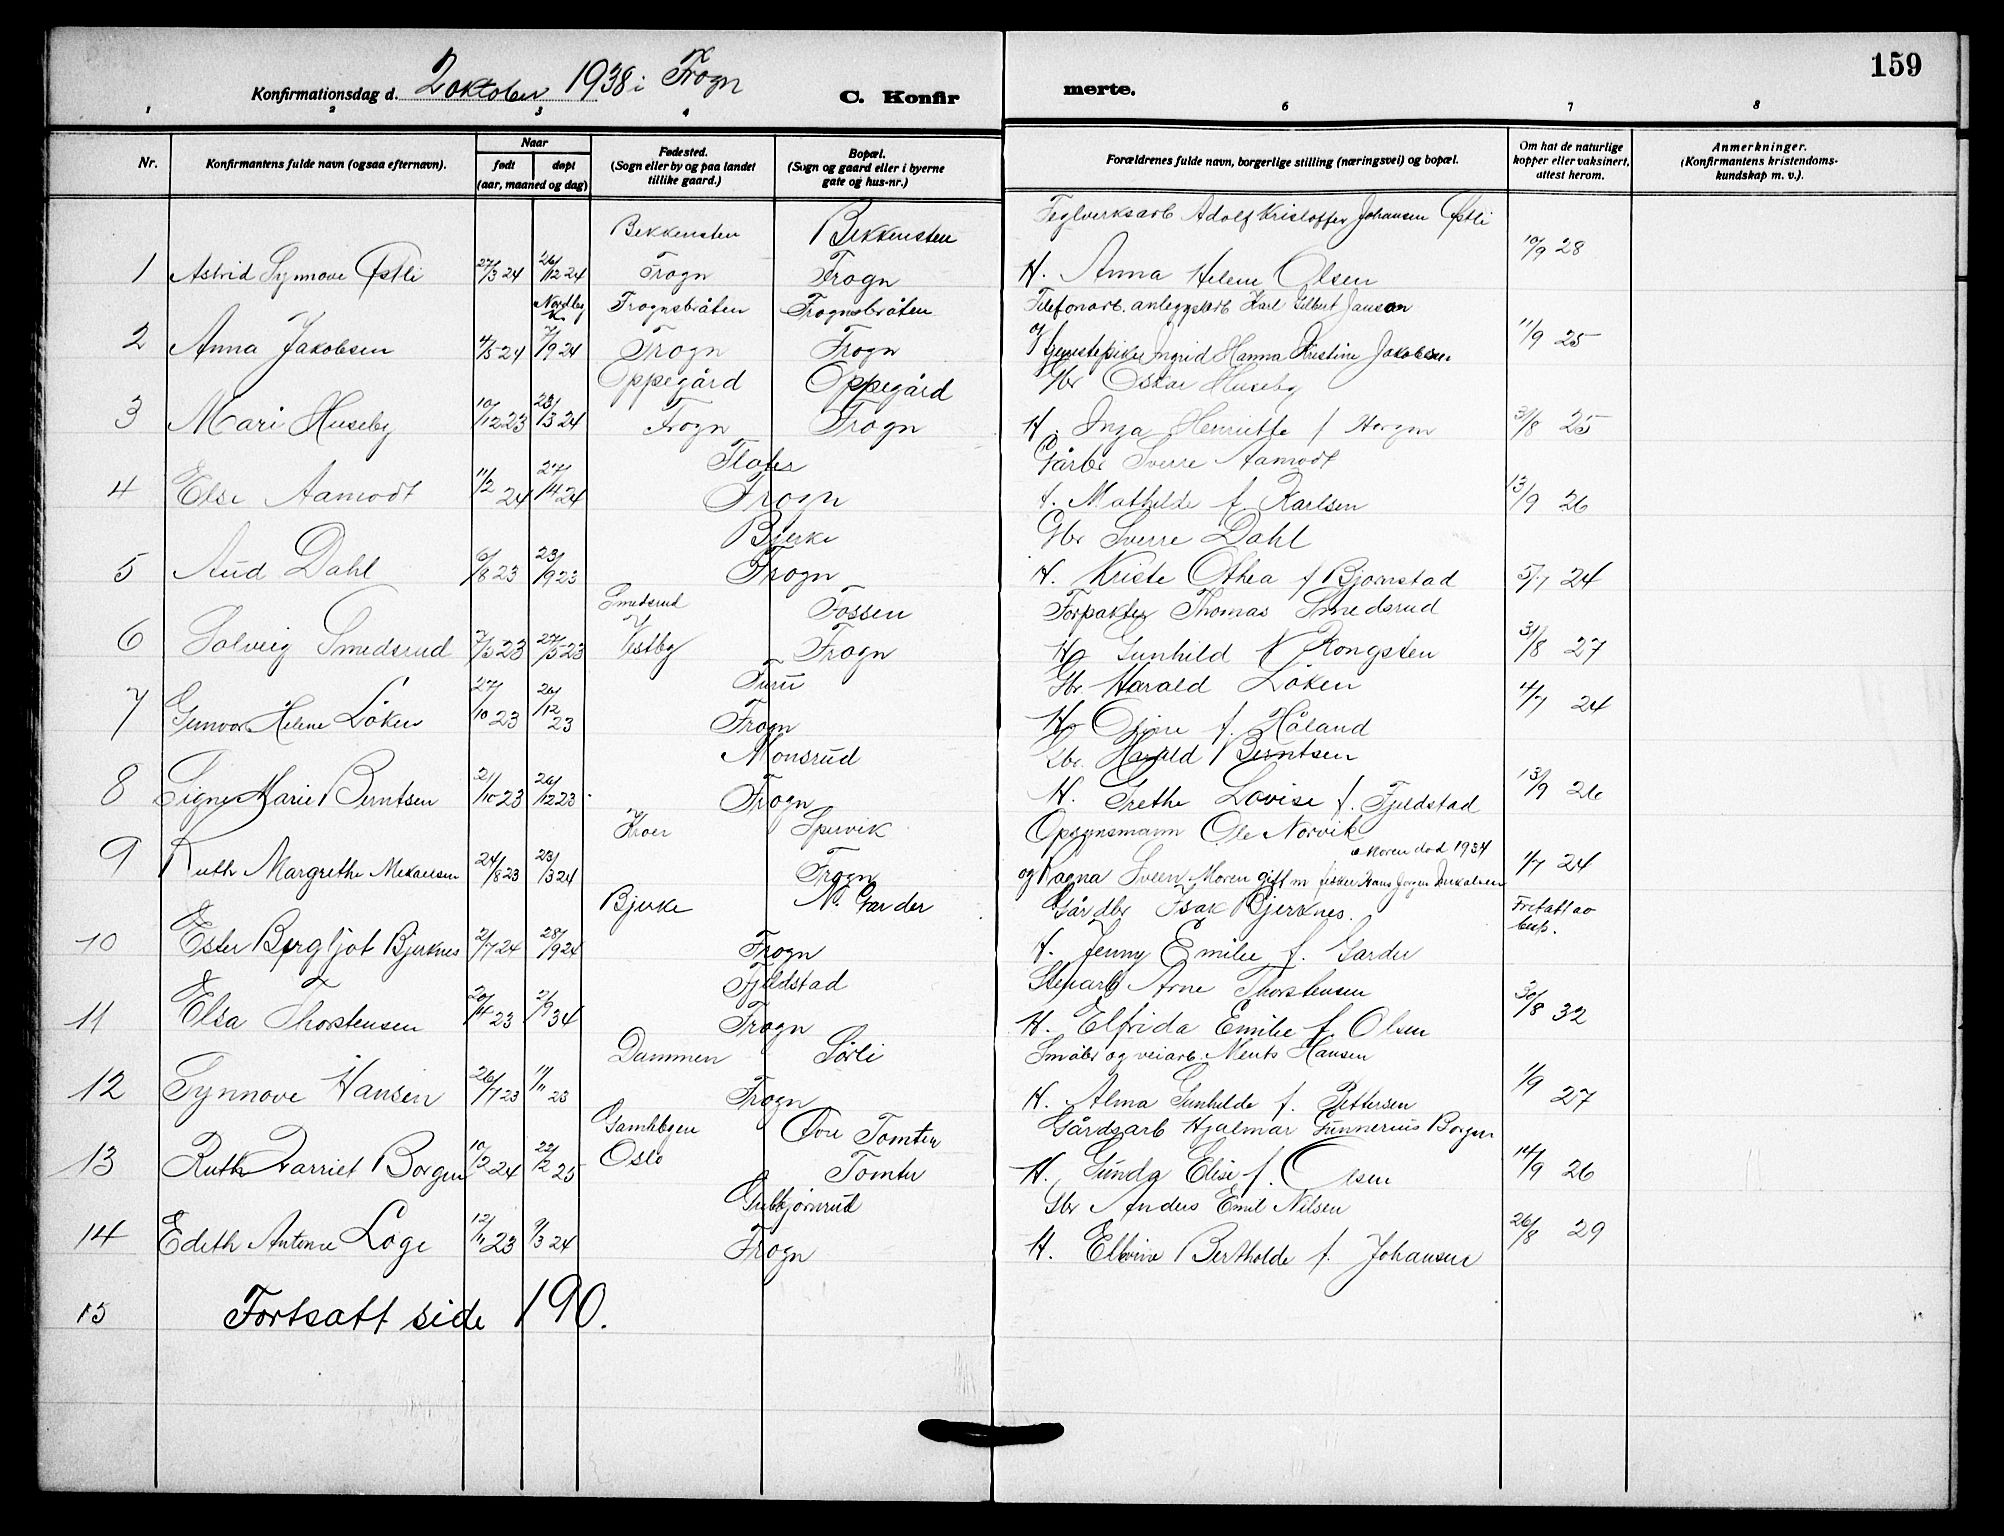 159
Konfirmationsdag d. 2 oktober 1938 i Frogn
C. Konfir merte.
1 2 3 4 6 7 8
Nr. Konfirmantens fulde navn (ogsaa efternavn). Naar født døpt (aar, maaned og dag) Fødested. (Sogn eller by og paa landet tillike gaard.) Bopæl. (Sogn og gaard eller i byerne gate og hus-nr.) Forældrenes fulde navn, borgerlige stilling (næringsvei) og bopæl. Om hat de naturlige kopper eller vaksinert, attest herom. Anmerkninger. (Konfirmantens kristendoms-kundskap m. v.).
Bekkensten Bekkensten Teglverksarb Adolf Kristoffer Johansen Østli
1 Astrid Synnove Østli 27/3 24 26/12 24 Frogn Frogn H. Anna Helene Olsen 10/9 28
Nordby K Frognsbråten Frognsbråten Telefonarb. anleggsarb Karl Gilbert Janson
2 Anna Jakobsen 4/5 24 7/9 24 Frogn Frogn og Tjenestepike Ingrid Hanna Kristine Jakobsen 11/9 25
Oppegård Oppegård Gbr Oskar Huseby
3 Mari Huseby 10/12 23 23/3 24 Frogn Frogn H. Inga Henriette f 31/8 25
Floter Gårbr Sverre Aamodt
4 Else Aamodt 11/2 24 27/4 24 Frogn H. Mathilde f Karlsen 13/9 26
Bjerke Gbr Sverre Dahl
5 Aud Dahl 6/8 23 23/9 23 Frogn H. Kriste Othea f Bjornstad 5/7 24
Smedsrud Fossen Forpakter Thomas Smedsrud
6 Solveig Smedsrud 7/3 23 27/5 23 Vestby Frogn H Gunhild f Kongsten 31/8 27
Furu Gbr Harald Löken
7 Gunvor Helene Löken 27/10 23 26/12 23 Frogn H f. Håland 4/7 24
Monsrud Gbr. Harald Berntsen
8 Signe Marie Berntsen 21/10 23 26/12 23 Frogn H. Grethe Lovise f. Fjeldstad 13/9 26
Kroer Spervik Opsynsmann Ole Norvik
Moren död 1934
9 Ruth Margrethe Mikaelsen 24/8 23 23/3 24 Frogn og Ragna Sveen Moren gift m fisker Hans Jorgen Mikalsen 1/7 24
Bjerke N. Garder Gårdbr Isak Bjerknes. Fretatt av
10 Ester Bergljot Bjerknes 2/7 24 28/9 24 Frogn H. Jenny Emilie f. Garder
Fjeldstad Stenarb Arne Thorstensen
11 Elsa Thorstensen 20/4 23 2/9 34 Frogn H. Elfrida Emilie f. Olsen 30/8 32
Dammen Sörli Småbr og veiarb. Ments Hansen
12 Synnove Hansen 26/7 23 11/11 23 Frogn H. Alma Gunhilde f. Pettersen 1/9 27
Gamlebyen Övre Tomter Gårdsarb Hjalmar Gunnerius Borgen
13 Ruth Harriet Borgen 10/12 24 22/2 25 Oslo Tomter H. Gunda Elise f. Olsen 14/9 26
Gulbjørnrud Gbr Anders Emil Nilsen
14 Edith Antonie Loge 12/11 23 9/3 24 Frogn H. Elvine Bertholde f. Johansen 26/8 29
15 Fortsatt side 190.